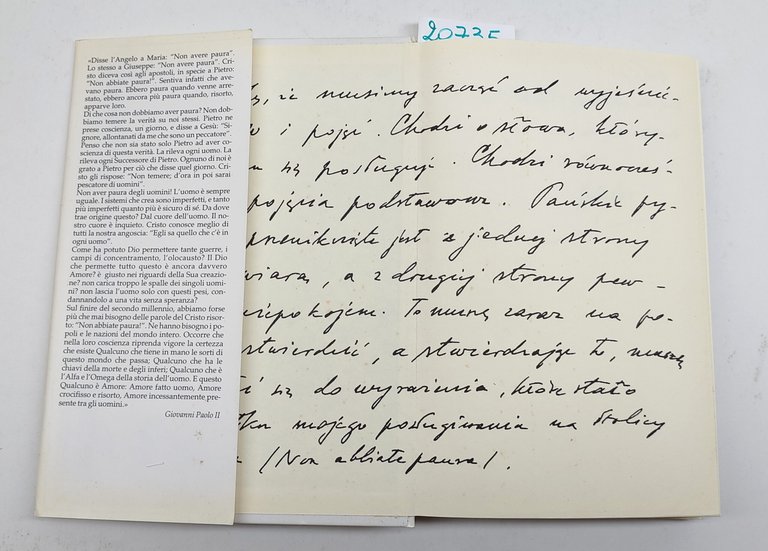 20735
«Disse l'Angelo a Maria: "Non avere paura".
Lo stesso a Giuseppe: "Non avere paura". Cri-
sto diceva così agli apostoli, in specie a Pietro:
"Non abbiate paura!". Sentiva infatti che ave-
vano paura. Ebbero paura quando venne arre-
stato, ebbero ancora più paura quando, risorto,
apparve loro.
Di che cosa non dobbiamo aver paura? Non dob-
biamo temere la verità su noi stessi. Pietro ne
prese coscienza, un giorno, e disse a Gesù: "Si-
gnore, allontanati da me che sono un peccatore".
Penso che non sia stato solo Pietro ad aver co-
scienza di questa verità. La rileva ogni uomo. La
rileva ogni Successore di Pietro. Ognuno di noi è
grato a Pietro per ciò che disse quel giorno. Cri-
sto gli rispose: "Non temere; d'ora in poi sarai
pescatore di uomini".
Non aver paura degli uomini! L'uomo è sempre
uguale. I sistemi che crea sono imperfetti, e tanto
più imperfetti quanto più è sicuro di sé. Da dove
trae origine questo? Dal cuore dell'uomo. Il no-
stro cuore è inquieto. Cristo conosce meglio di
tutti la nostra angoscia: "Egli sa quello che c'è in
ogni uomo".
Come ha potuto Dio permettere tante guerre, i
campi di concentramento, l'olocausto? Il Dio
che permette tutto questo è ancora davvero
Amore? è giusto nei riguardi della Sua creazio-
ne? non carica troppo le spalle dei singoli uomi-
ni? non lascia l'uomo solo con questi pesi, con-
dannandolo a una vita senza speranza?
Sul finire del secondo millennio, abbiamo forse
più che mai bisogno delle parole del Cristo risor-
to: "Non abbiate paura!". Ne hanno bisogno i po-
poli e le nazioni del mondo intero. Occorre che
nella loro coscienza riprenda vigore la certezza
che esiste Qualcuno che tiene in mano le sorti di
questo mondo che passa; Qualcuno che ha le
chiavi della morte e degli inferi; Qualcuno che è
l'Alfa e l'Omega della storia dell'uomo. E questo
Qualcuno è Amore: Amore fatto uomo, Amore
crocifisso e risorto, Amore incessantemente pre-
sente tra gli uomini.»
Giovanni Paolo II
że musimy zacząć od wyjaśnie-
i pojęć. Chodzi o słowa, który-
się posługuję. Chodzi równocześ-
pojęcia podstawowe. Pańskie py-
przeniknięte jest z jednej strony
wiarą, a z drugiej strony pew-
niepokojem. To muszę zaraz na po-
stwierdzić, a stwierdzając to, muszę
się do wyrażenia, które stało
mojego posługiwania na Stolicy
(Non abbiate paura).